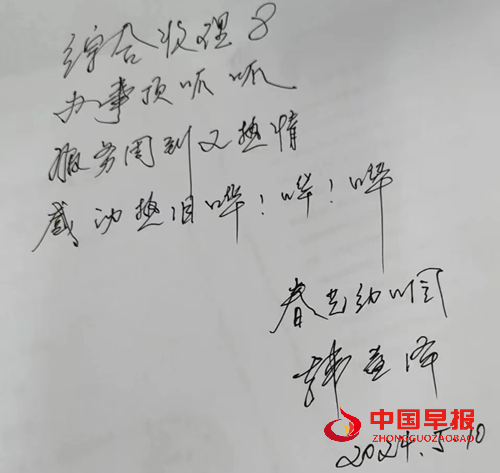 综合收理8
办事顶呱呱
服务周到又热情
感动热泪哗!哗!哗
春光幼儿园
韩
中国早报
ZHONGGUOZAOBAO
2024.5.10